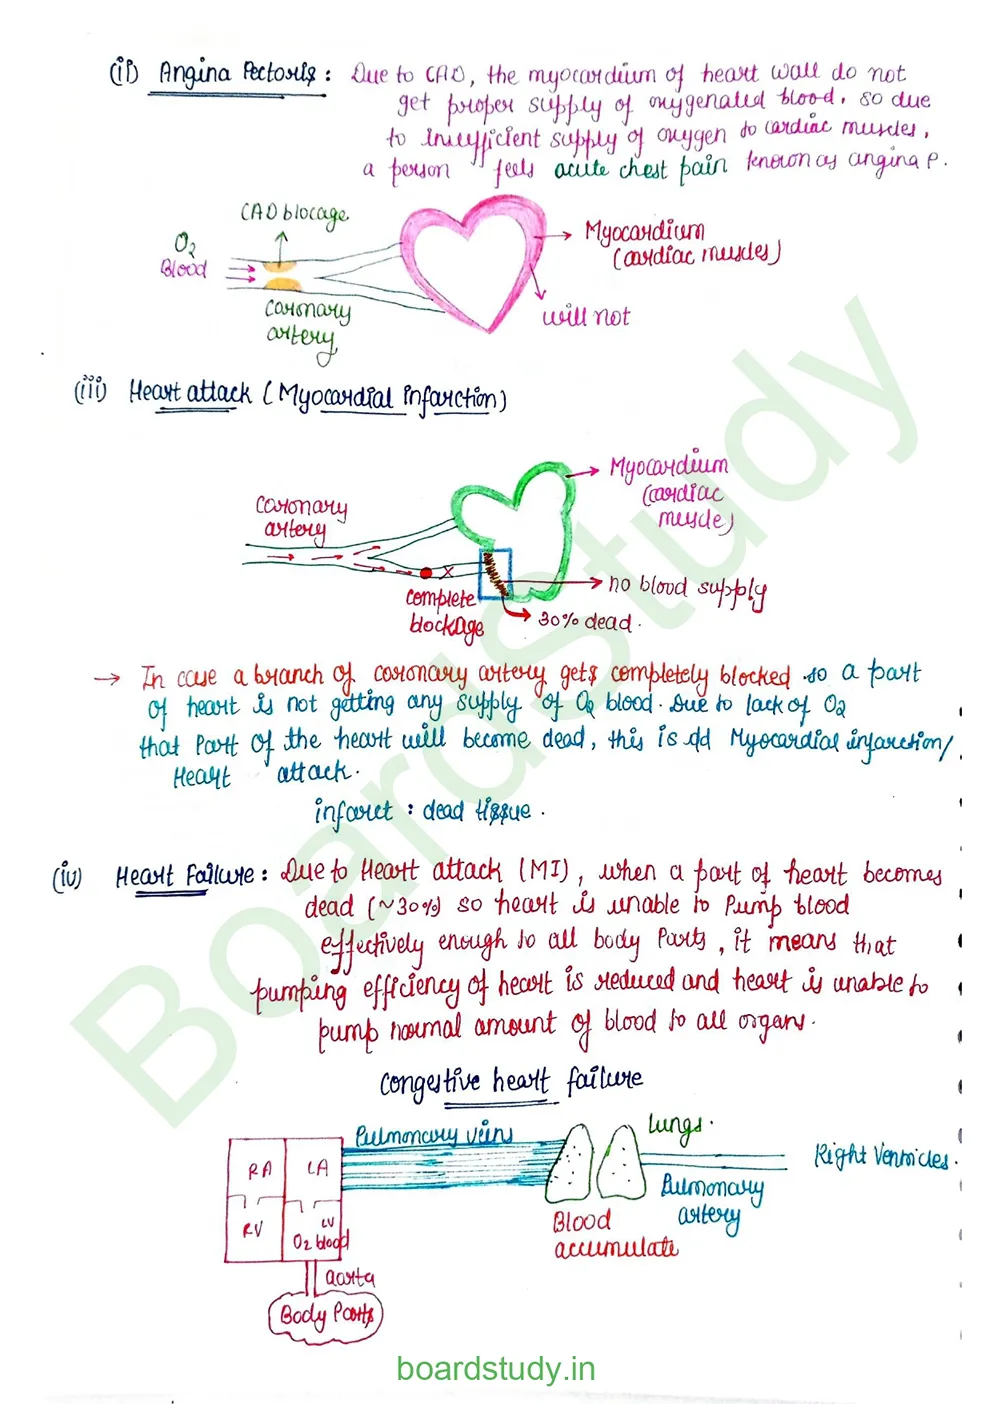 (ii) Angina Pectoris : Due to CAD, the myocardium of heart wall do not
get proper supply of oxygenated blood. so due
to insufficient supply of oxygen to cardiac muscles,
a person feels acute chest pain known as angina P.
CAD blocage
O2
Blood
Myocardium
(cardiac muscles)
will not
coronary
artery
(iii) Heart attack (Myocardial infarction)
Myocardium
(cardiac
muscle)
coronary
artery
no blood supply
complete
blockage
30% dead.
→ In case a branch of coronary artery gets completely blocked so a part
of heart is not getting any supply of O2 blood. Due to lack of O2
that part of the heart will become dead, this is Myocardial infarction/
Heart attack.
infarct : dead tissue.
(iv) Heart Failure : Due to Heart attack (MI), when a part of heart becomes
dead (~30%) so heart is unable to Pump blood
effectively enough to all body Parts, it means that
pumping efficiency of heart is reduced and heart is unable to
pump normal amount of blood to all organs.
congestive heart failure
Pulmonary veins
Lungs.
RA
LA
Right Ventricles.
Pulmonary
artery
RV
LV
O2 blood
Blood
accumulate
aorta
Body Parts
Boardstudy
boardstudy.in